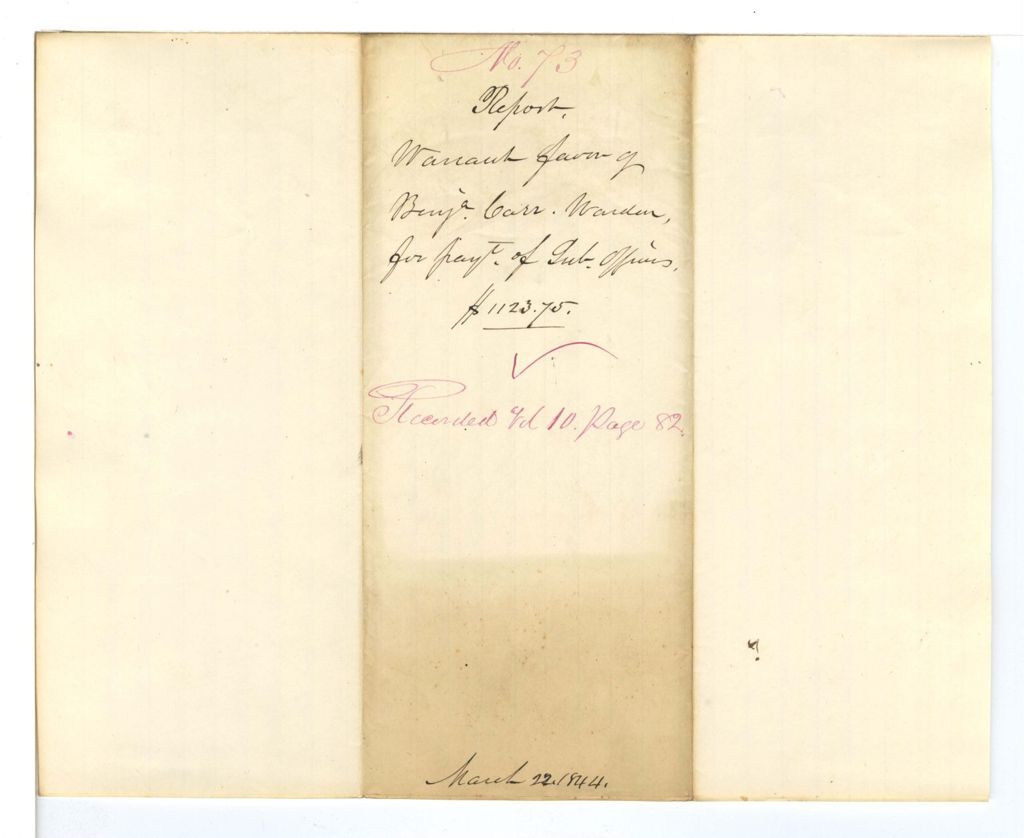 No. 73
Report,
Warrant favor of
Benjᵃ. Carr. Warden,
for payᵗ. of Sub. Officers,
$1123.75.
Recorded Vol 10. Page 82
March 22. 1844.